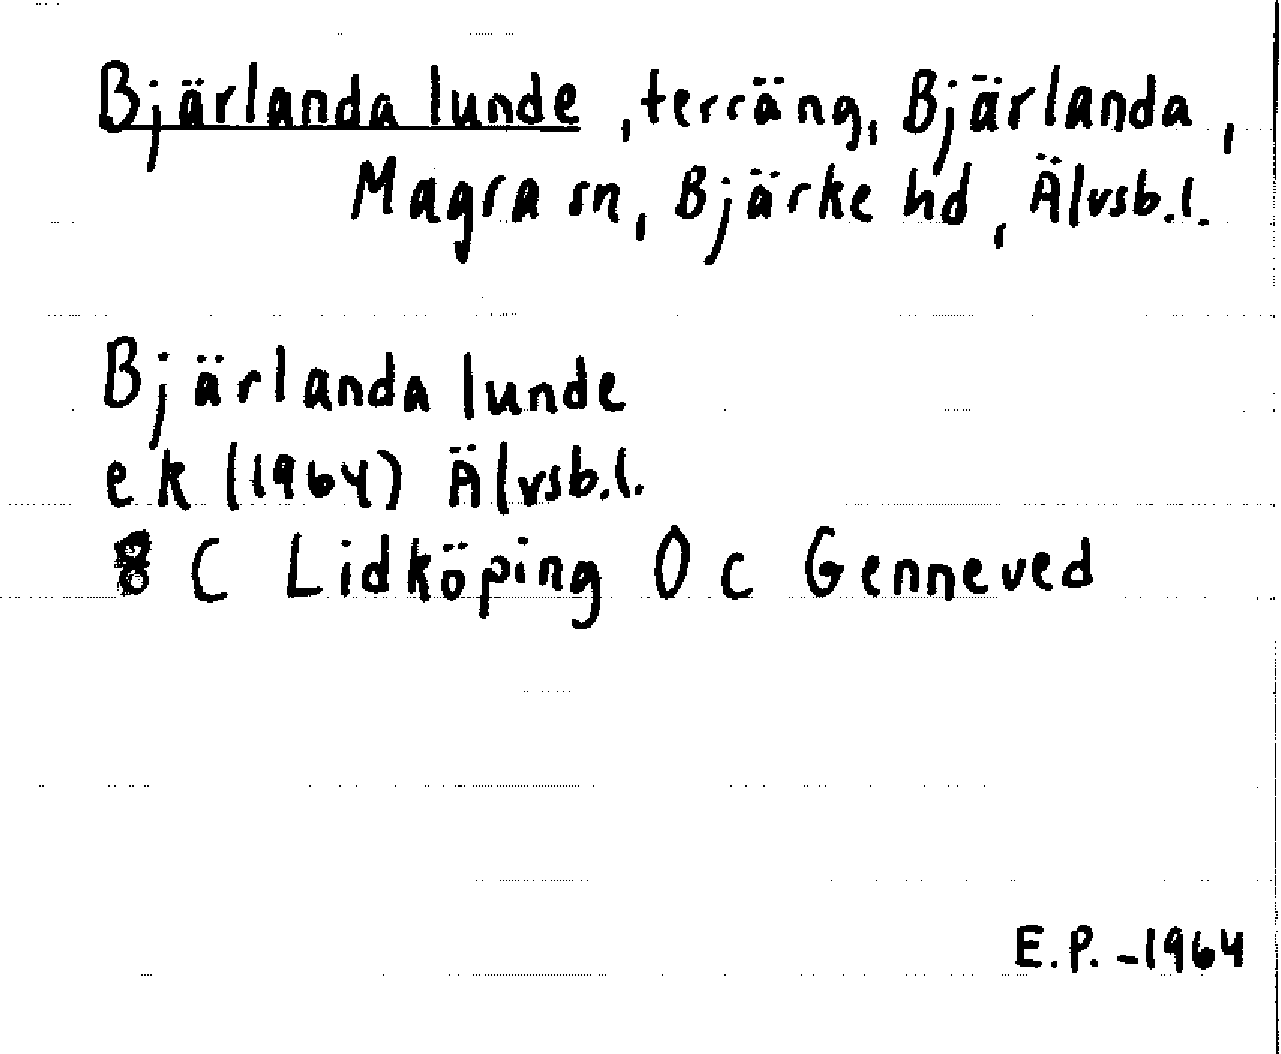 Bjärlanda lunde, terräng, Bjärlanda,
Magra sn, Bjärke hd, Älvsb.l.
Bjärlanda lunde
ek (1964) Älvsb.l.
8 C Lidköping 0 c Genneved
E.P. -1964